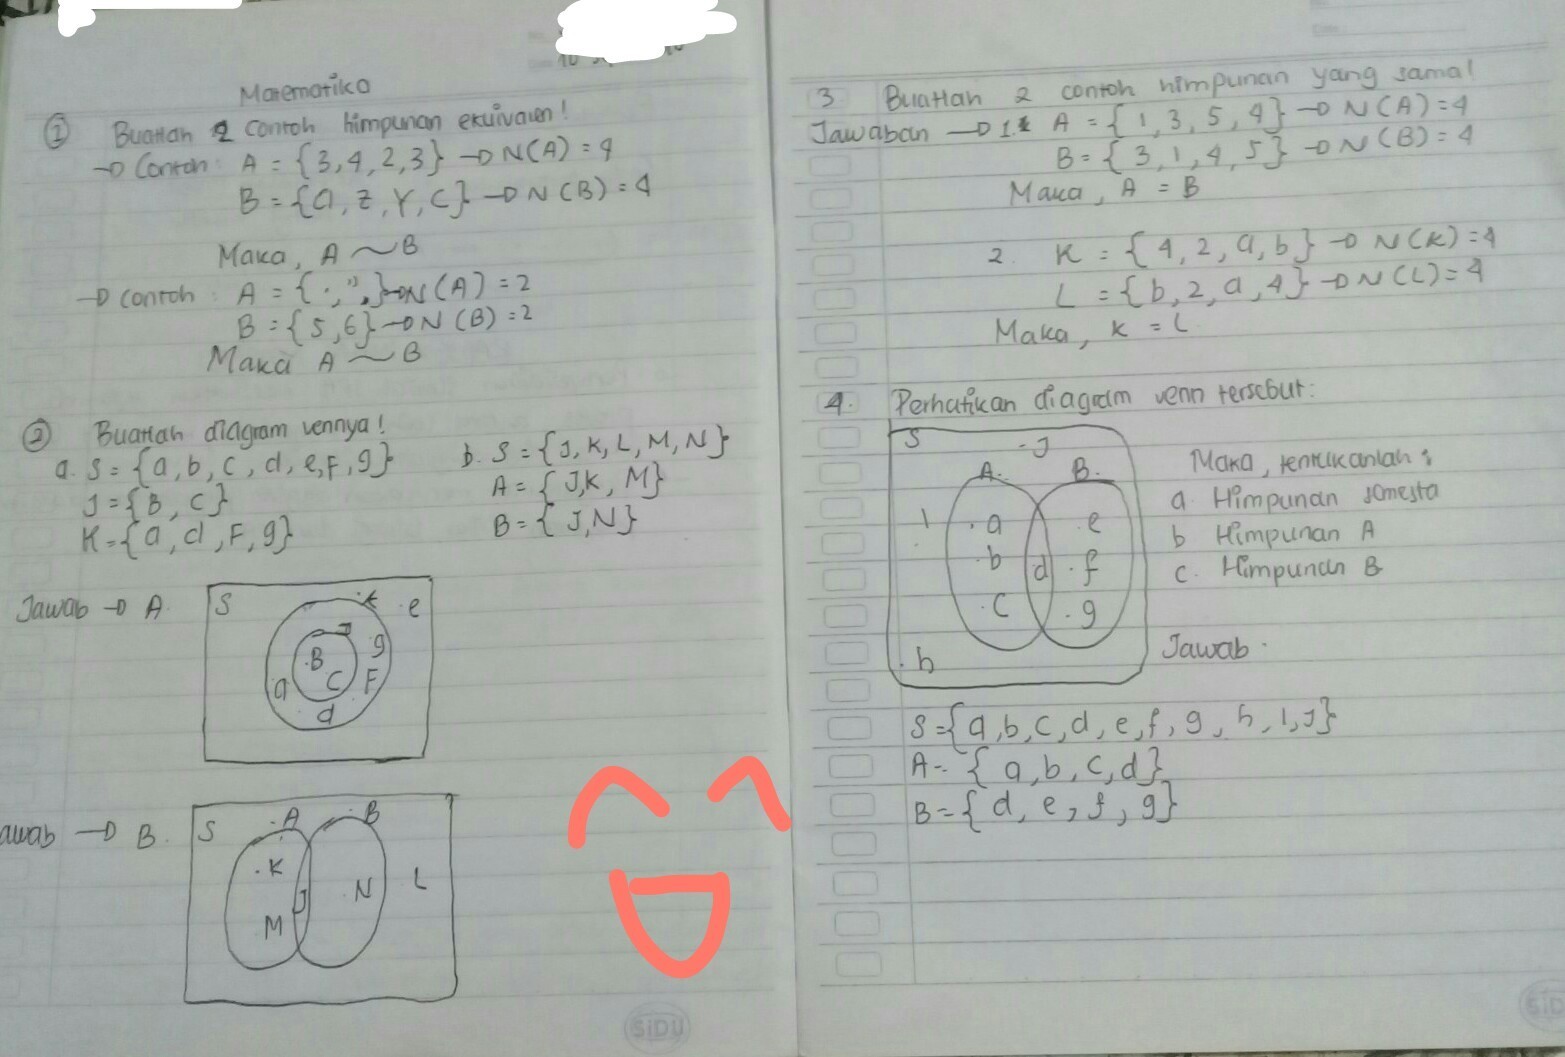 Matematika
① Buatlah 2 contoh himpunan ekuivalen!
→ Contoh: A = {3,4,2,3} → N(A) = 4
B = {a, z, Y, C} → N(B) = 4
Maka, A ~ B
→ Contoh: A = { · , " , } → N(A) = 2
B = {5,6} → N(B) = 2
Maka A ~ B
② Buatlah diagram vennya!
a. S = {a, b, c, d, e, F, g}
J = {B, C}
K = {a, d, F, g}
b. S = {J, K, L, M, N}
A = {J, K, M}
B = {J, N}
Jawab → A.
S
K
e
J
B
g
a
C
F
d
awab → B.
S
A
B
K
J
N
L
M
SIDU
3 Buatlah 2 contoh himpunan yang sama!
Jawaban → 1. A = {1, 3, 5, 4} → N(A) = 4
B = {3, 1, 4, 5} → N(B) = 4
Maka, A = B
2. K = {4, 2, a, b} → N(K) = 4
L = {b, 2, a, 4} → N(L) = 4
Maka, K = L
4. Perhatikan diagram venn tersebut:
S
J
A.
B.
I
a
e
b
d
f
c
g
h
Maka, tentukanlah:
a. Himpunan semesta
b Himpunan A
c. Himpunan B
Jawab.
S = {a, b, c, d, e, f, g, h, I, J}
A = {a, b, c, d}
B = {d, e, f, g}